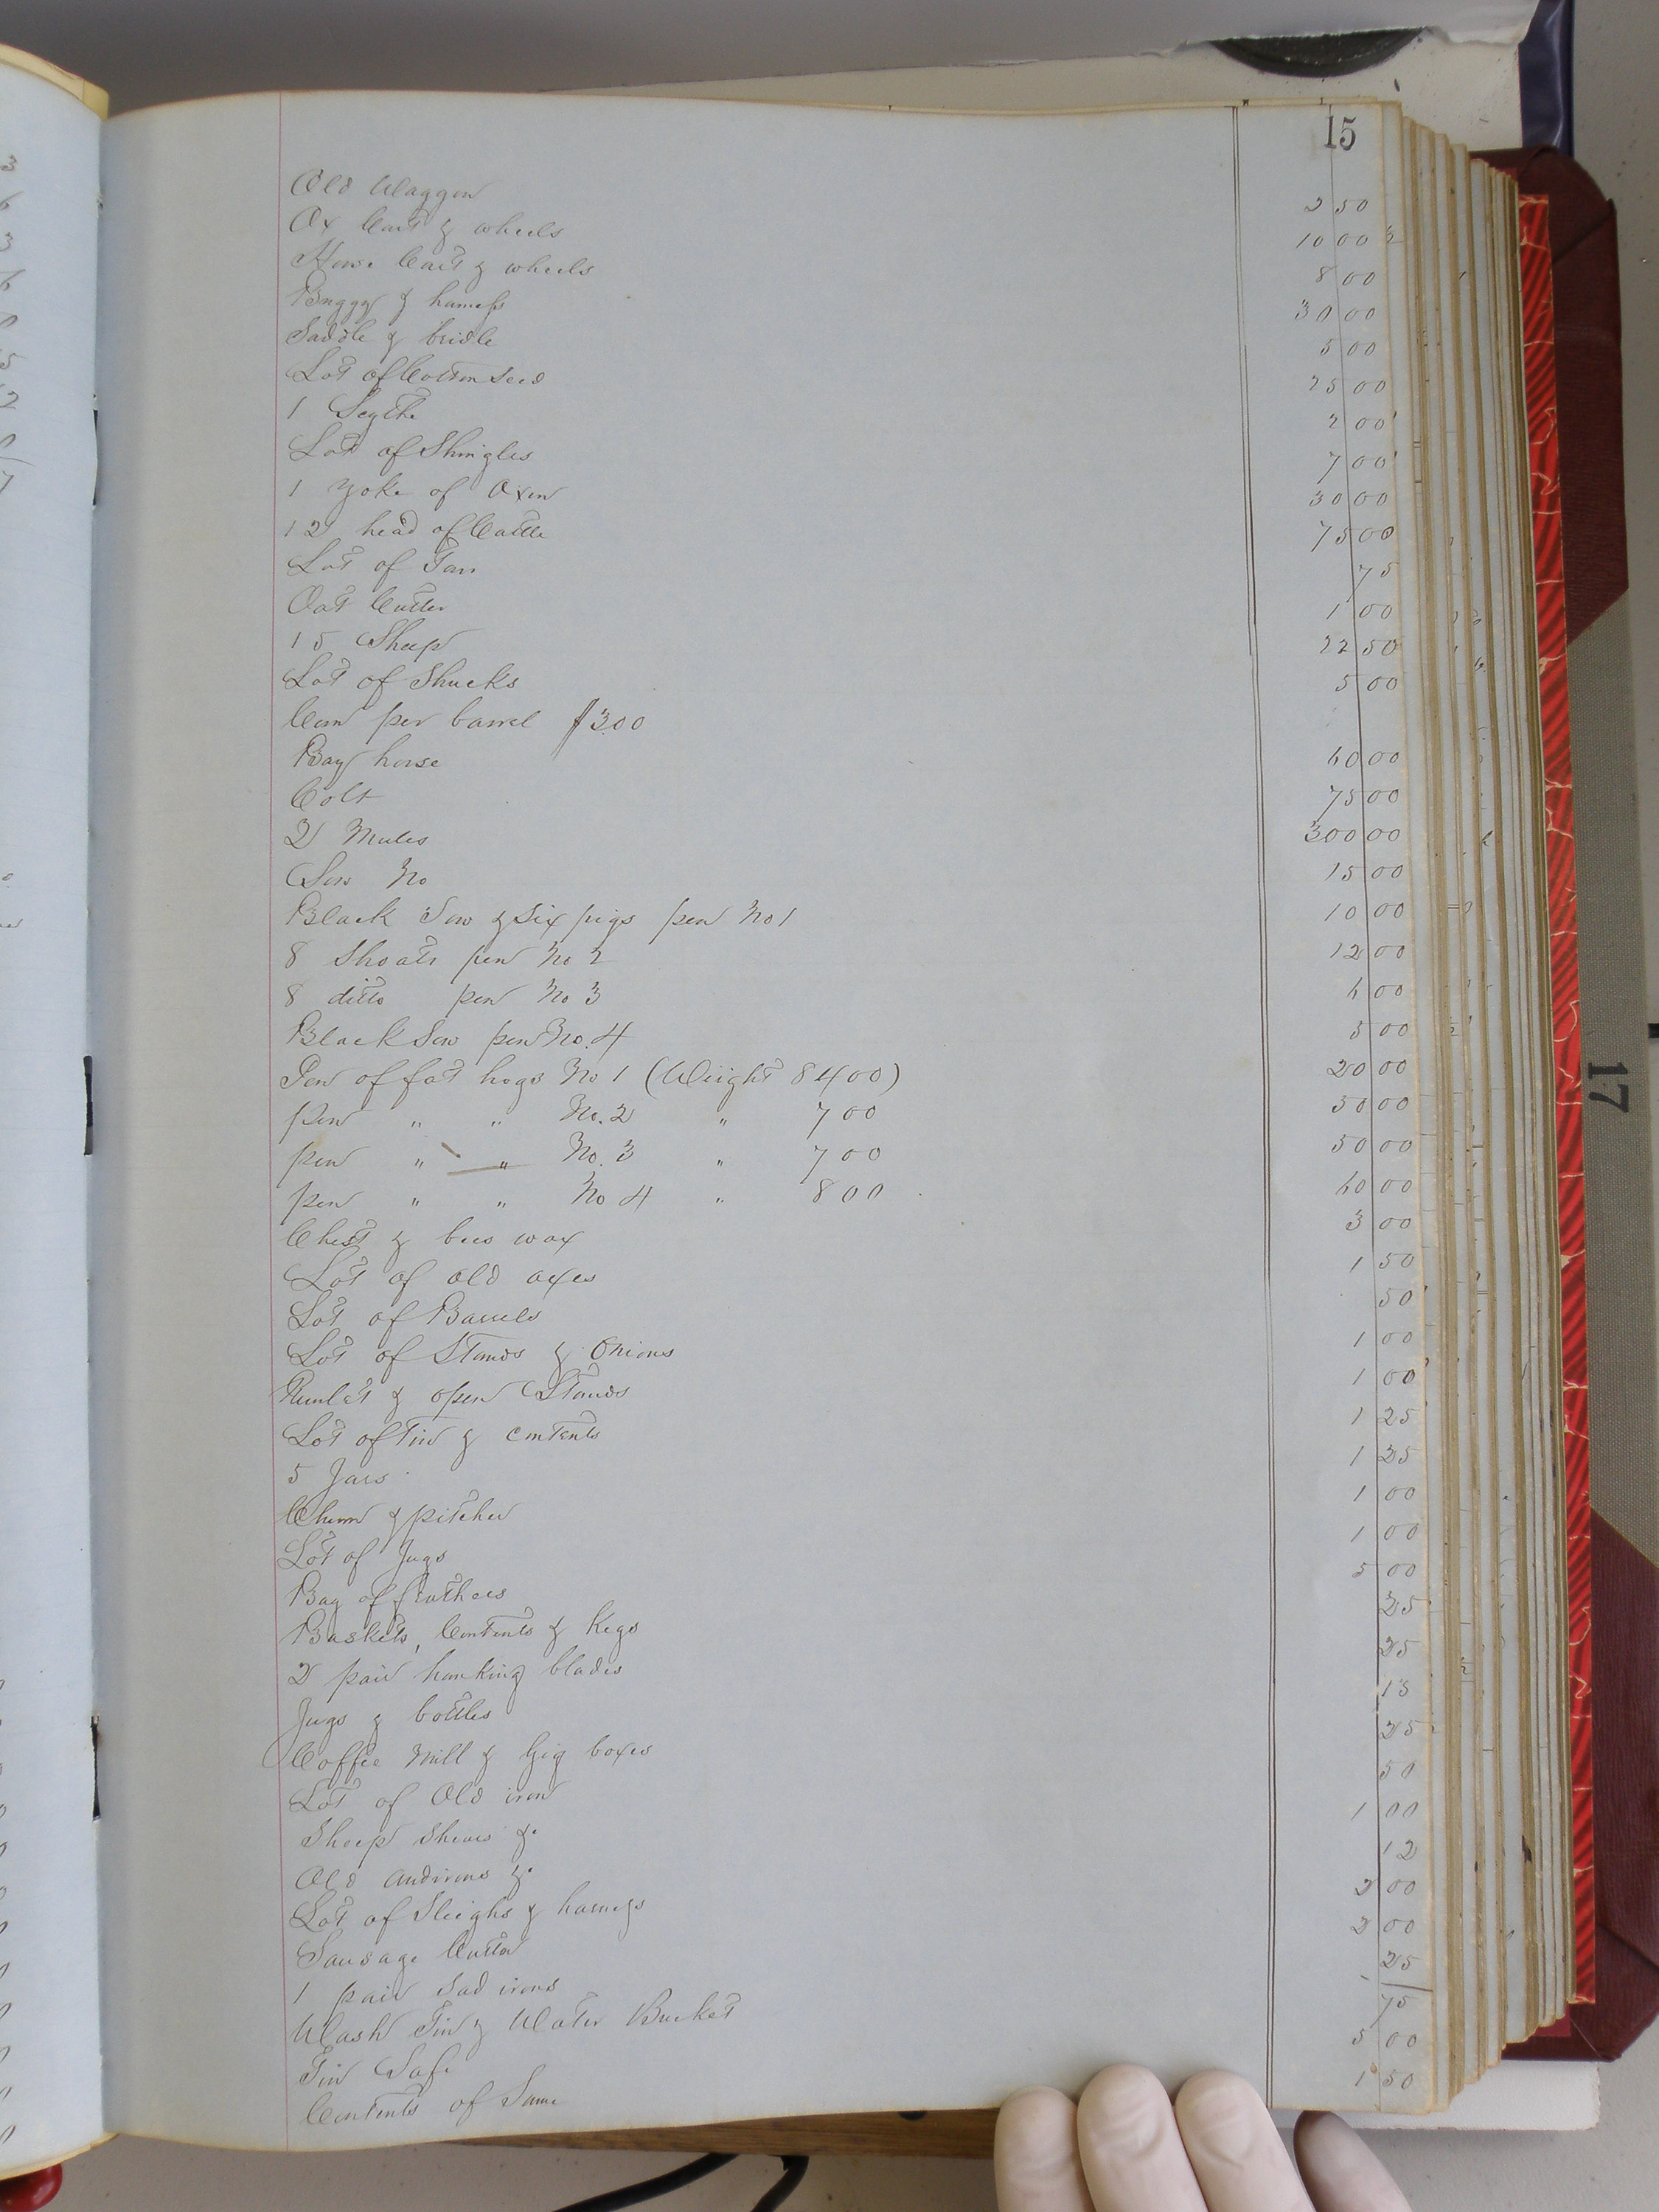 15
Old Waggon 2 50
Ox Cart & wheels 10 00
Horse Cart & wheels 8 00
Buggy & harness 30 00
Saddle & bridle 5 00
Lot of Cotton Seed 25 00
1 Scythe 2 00
Lot of Shingles 7 00
1 yoke of Oxen 30 00
12 head of Cattle 75 00
Lot of Tan 75
Oat Cutter 1 00
15 Sheep 22 50
Lot of Shucks 5 00
Corn per barrel $3.00
Bay horse 60 00
Colt 75 00
2 Mules 300 00
Sow No 15 00
Black Sow & Six pigs pen No 1 10 00
8 Shoats pen No 2 12 00
8 ditto pen No 3 6 00
Black Sow pen No. 4 5 00
Pen of fat hogs No 1 (Weight 8400) 20 00
pen " " No. 2 " 700 50 00
pen " " No. 3 " 700 50 00
pen " " No 4 " 800 60 00
Chest & bees wax 3 00
Lot of old axes 1 50
Lot of Barrels 50
Lot of Stands & Onions 1 00
Runlet & open Stands 1 00
Lot of Tin & contents 1 25
5 Jars 1 25
Churn & pitcher 1 00
Lot of Jugs 1 00
Bag of feathers 5 00
Baskets, Contents & Kegs 25
2 pair hanking blades 25
Jugs & bottles 15
Coffee Mill & Gig boxes 25
Lot of Old iron 50
Sheep Shears &c 1 00
Old andirons &c 12
Lot of Sleighs & harness 2 00
Sausage Cutter 2 00
1 pair Sad irons 25
Wash Tin & Water Bucket 75
Tin Safe 5 00
Contents of Same 1 50
17